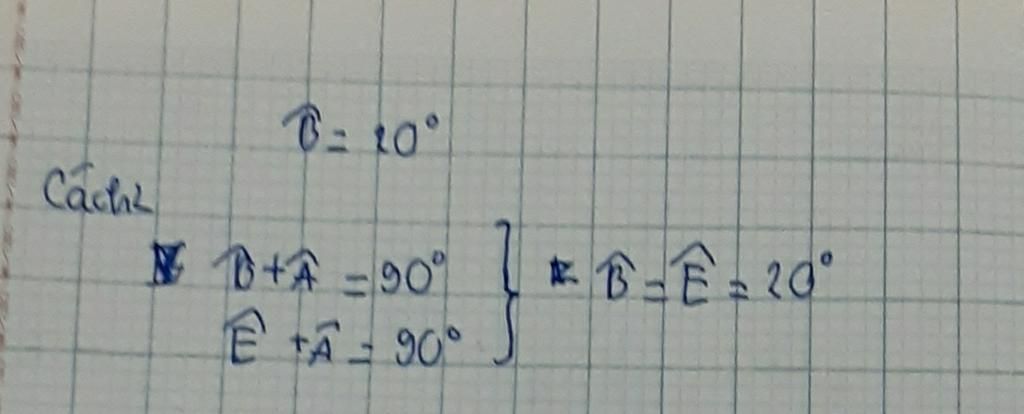 B̂ = 20°
Cách2
B̂ + Â = 90°
Ê + Â = 90° } B̂ = Ê = 20°